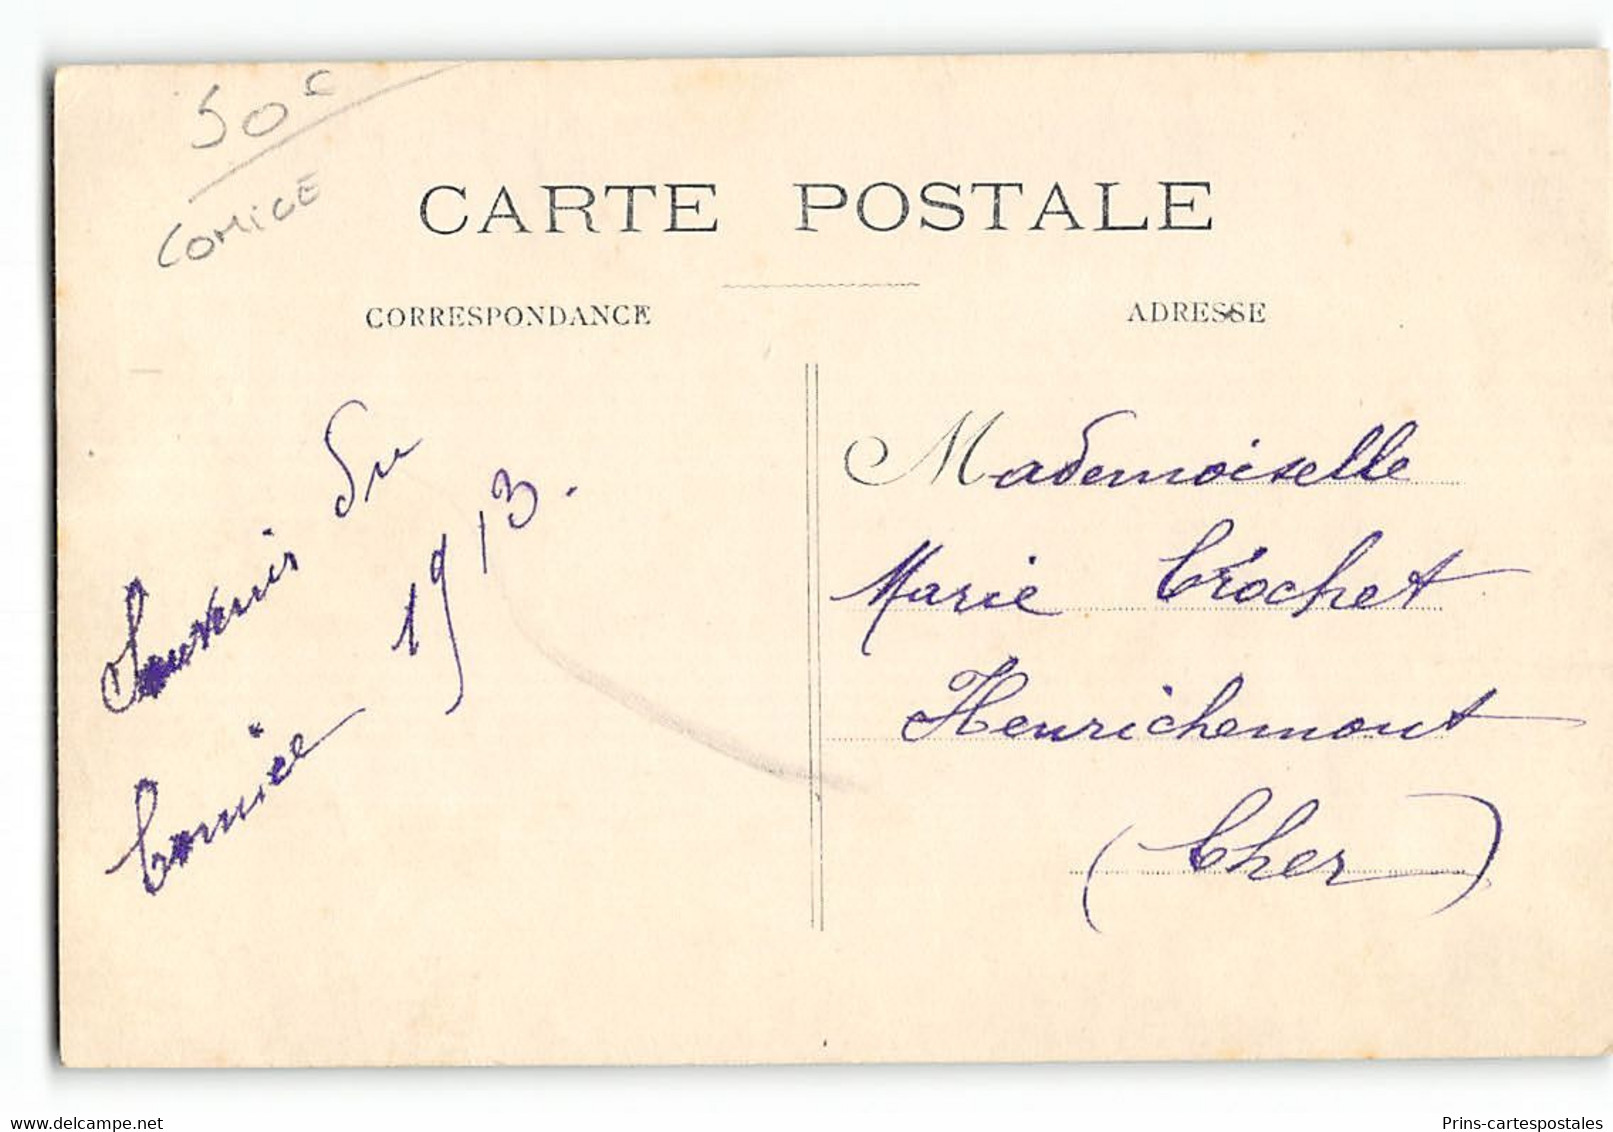 50c
COMICE
CARTE POSTALE
CORRESPONDANCE
ADRESSE
Souvenir du
Comice 1913.
Mademoiselle
Marie Crochet
Henrichemont
(Cher)
www.delcampe.net
Prins-cartespostales